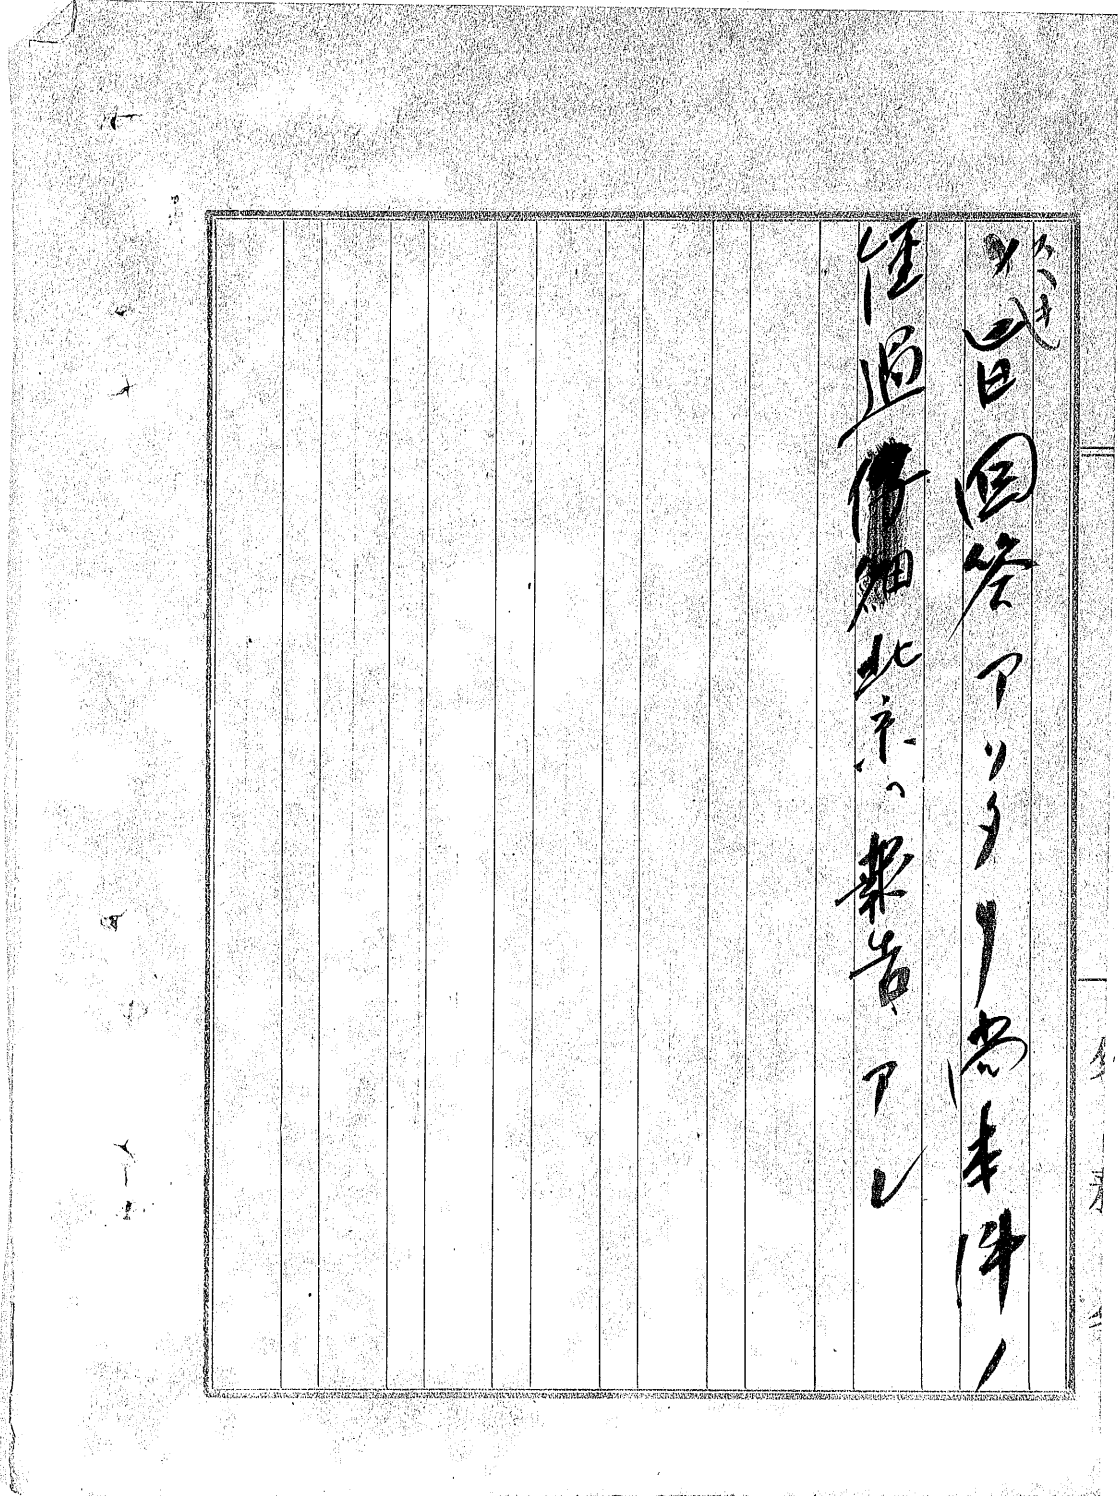 旨回答アリタリ尚本件ノ
経過詳細北京ヘ報告アレ